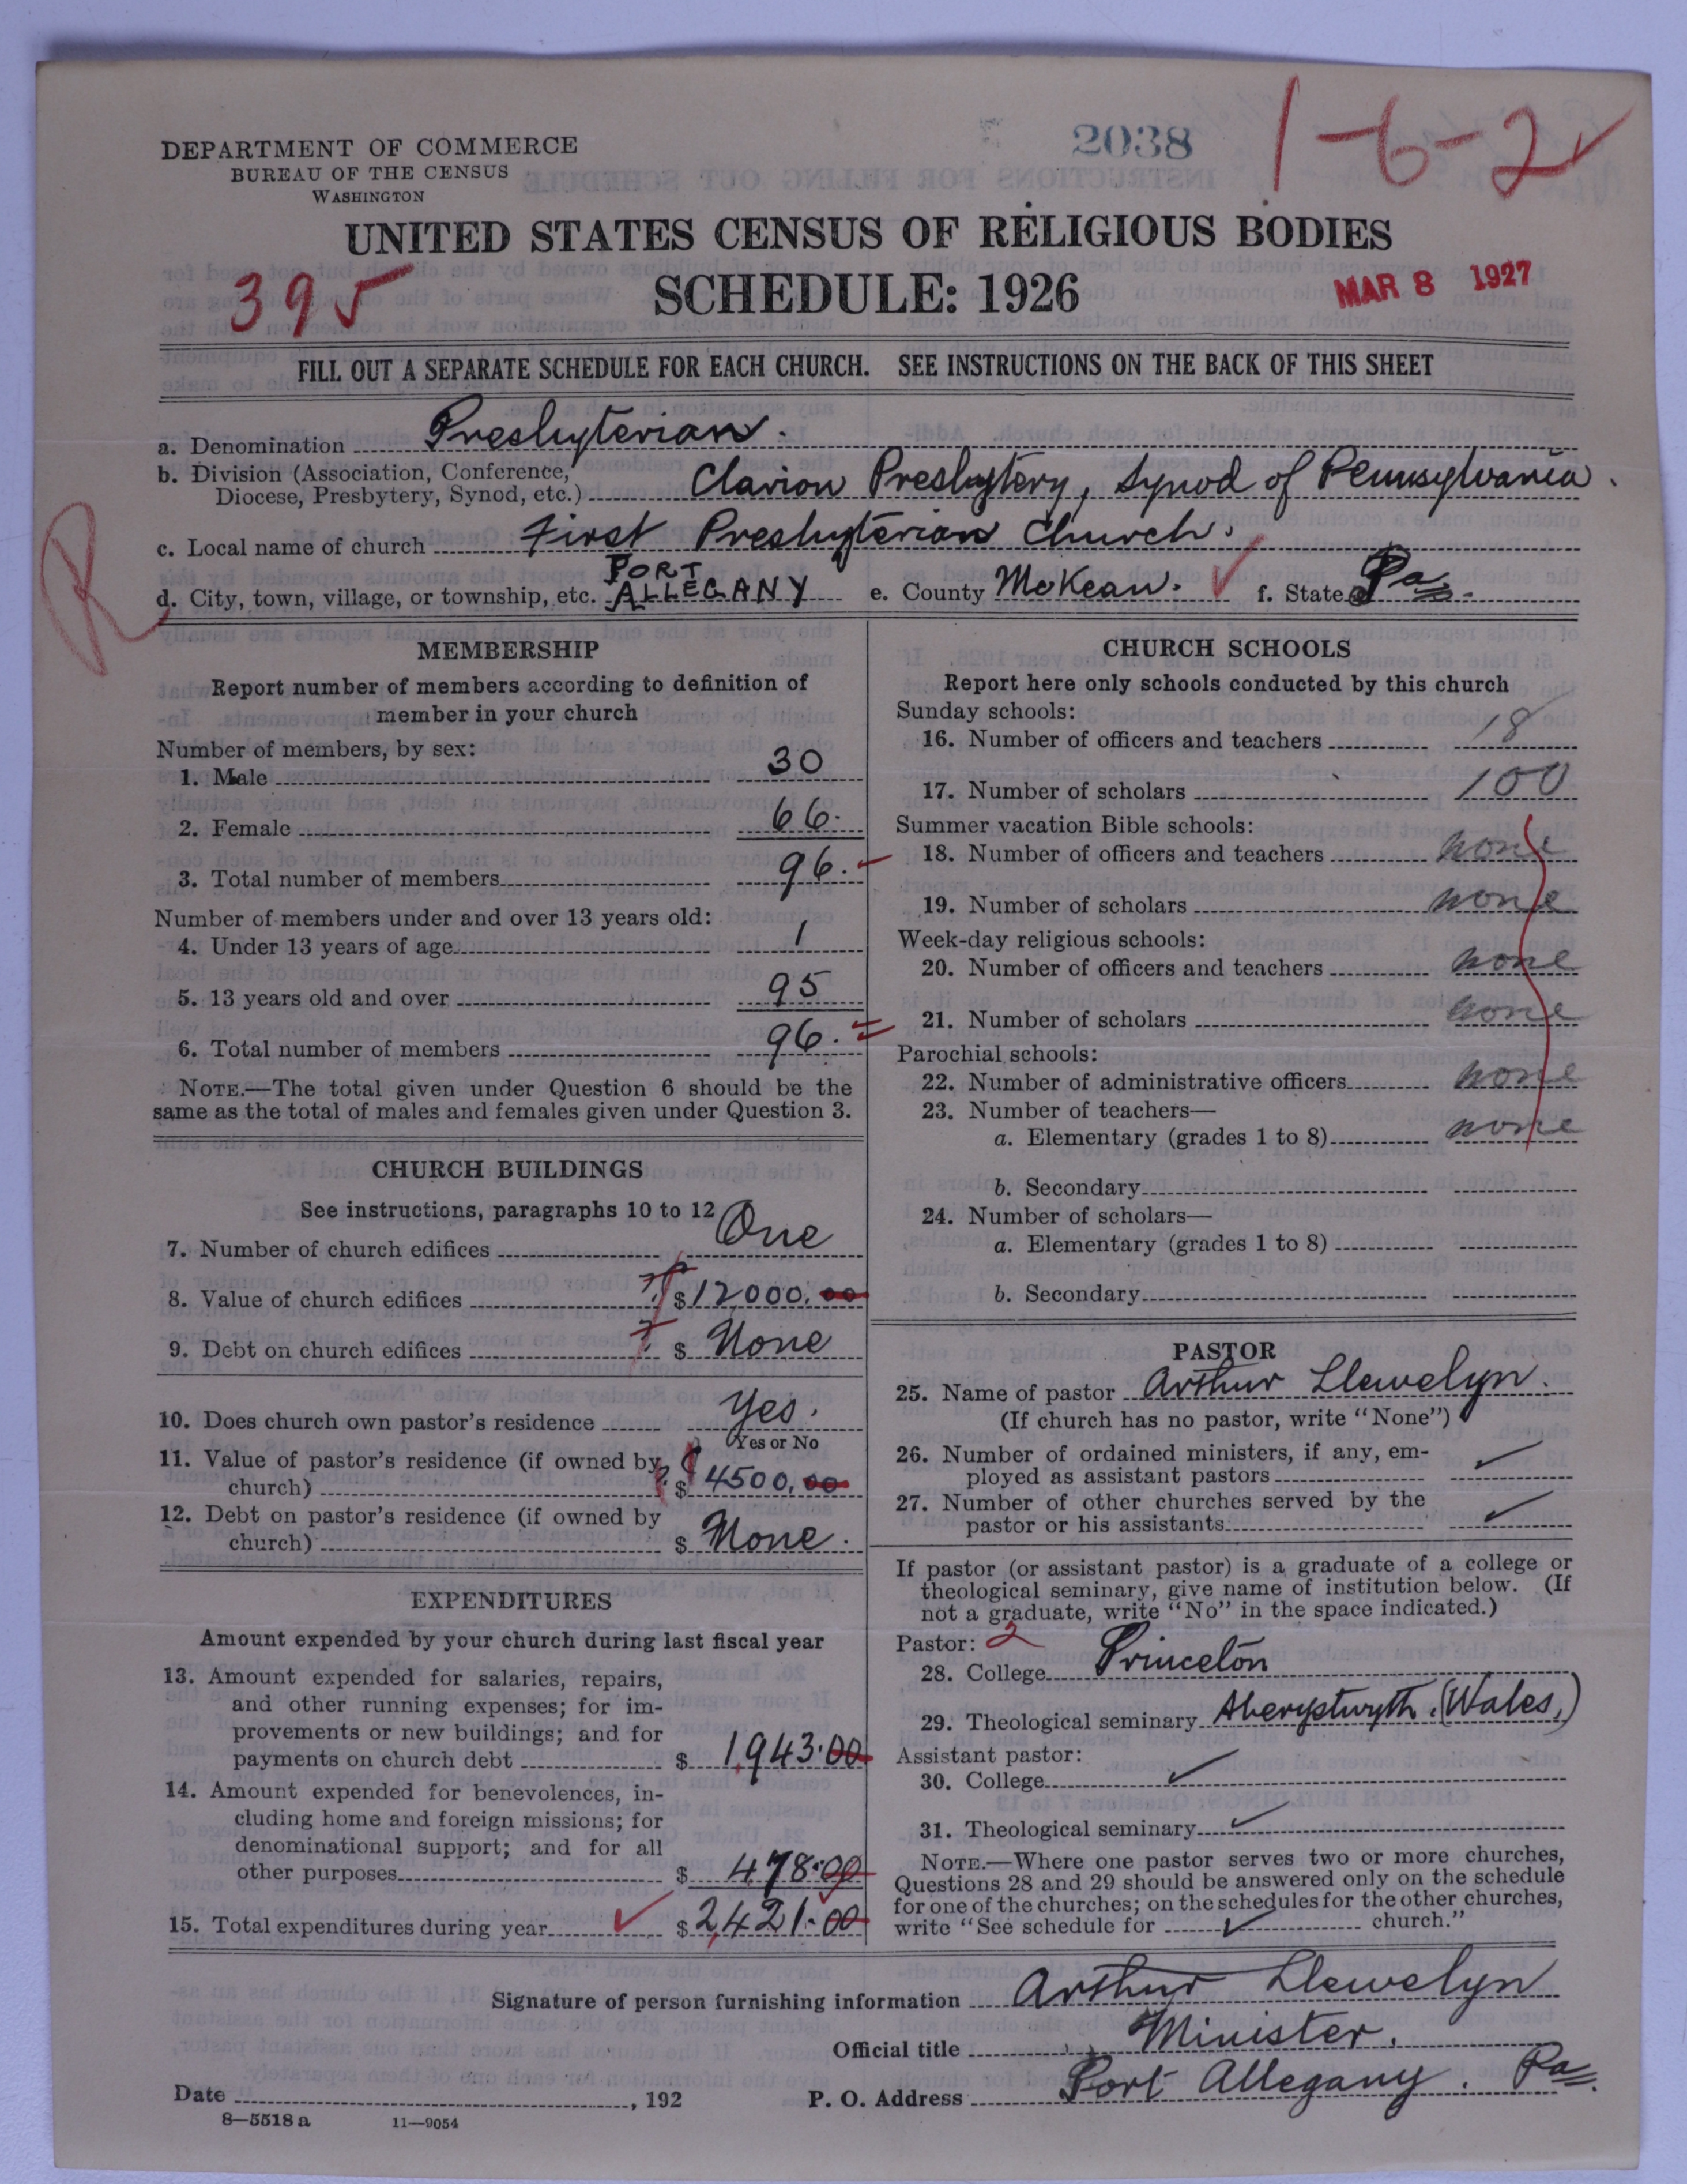 2038
1-6-2
DEPARTMENT OF COMMERCE
BUREAU OF THE CENSUS
WASHINGTON
UNITED STATES CENSUS OF RELIGIOUS BODIES
SCHEDULE: 1926
395
MAR 8 1927
FILL OUT A SEPARATE SCHEDULE FOR EACH CHURCH. SEE INSTRUCTIONS ON THE BACK OF THIS SHEET
a. Denomination Presbyterian.
b. Division (Association, Conference,
Diocese, Presbytery, Synod, etc.) Clarion Presbytery, Synod of Pennsylvania.
c. Local name of church First Presbyterian Church.
R
d. City, town, village, or township, etc. PORT ALLEGANY e. County McKean. f. State Pa.
MEMBERSHIP
Report number of members according to definition of
member in your church
Number of members, by sex:
1. Male 30
2. Female 66.
3. Total number of members 96.
Number of members under and over 13 years old:
4. Under 13 years of age 1
5. 13 years old and over 95
6. Total number of members 96.
NOTE.—The total given under Question 6 should be the
same as the total of males and females given under Question 3.
CHURCH BUILDINGS
See instructions, paragraphs 10 to 12
7. Number of church edifices One
8. Value of church edifices $12000.00
9. Debt on church edifices $ None
10. Does church own pastor's residence Yes.
Yes or No
11. Value of pastor's residence (if owned by
church) $ 4500.00
12. Debt on pastor's residence (if owned by
church) $ None.
EXPENDITURES
Amount expended by your church during last fiscal year
13. Amount expended for salaries, repairs,
and other running expenses; for im-
provements or new buildings; and for
payments on church debt $ 1,943.00
14. Amount expended for benevolences, in-
cluding home and foreign missions; for
denominational support; and for all
other purposes $ 478.00
15. Total expenditures during year $2,421.00
CHURCH SCHOOLS
Report here only schools conducted by this church
Sunday schools:
16. Number of officers and teachers 18
17. Number of scholars 100
Summer vacation Bible schools:
18. Number of officers and teachers none
19. Number of scholars none
Week-day religious schools:
20. Number of officers and teachers none
21. Number of scholars none
Parochial schools:
22. Number of administrative officers none
23. Number of teachers—
a. Elementary (grades 1 to 8) none
b. Secondary
24. Number of scholars—
a. Elementary (grades 1 to 8)
b. Secondary
PASTOR
25. Name of pastor Arthur Llewelyn.
(If church has no pastor, write "None")
26. Number of ordained ministers, if any, em-
ployed as assistant pastors ✓
27. Number of other churches served by the
pastor or his assistants ✓
If pastor (or assistant pastor) is a graduate of a college or
theological seminary, give name of institution below. (If
not a graduate, write "No" in the space indicated.)
Pastor: 2
28. College Princeton
29. Theological seminary Aberystwyth. (Wales,)
Assistant pastor:
30. College ✓
31. Theological seminary ✓
NOTE.—Where one pastor serves two or more churches,
Questions 28 and 29 should be answered only on the schedule
for one of the churches; on the schedules for the other churches,
write "See schedule for ✓ church."
Signature of person furnishing information Arthur Llewelyn
Official title Minister.
Date , 192 P. O. Address Port Allegany. Pa.
8—5518 a 11—9054